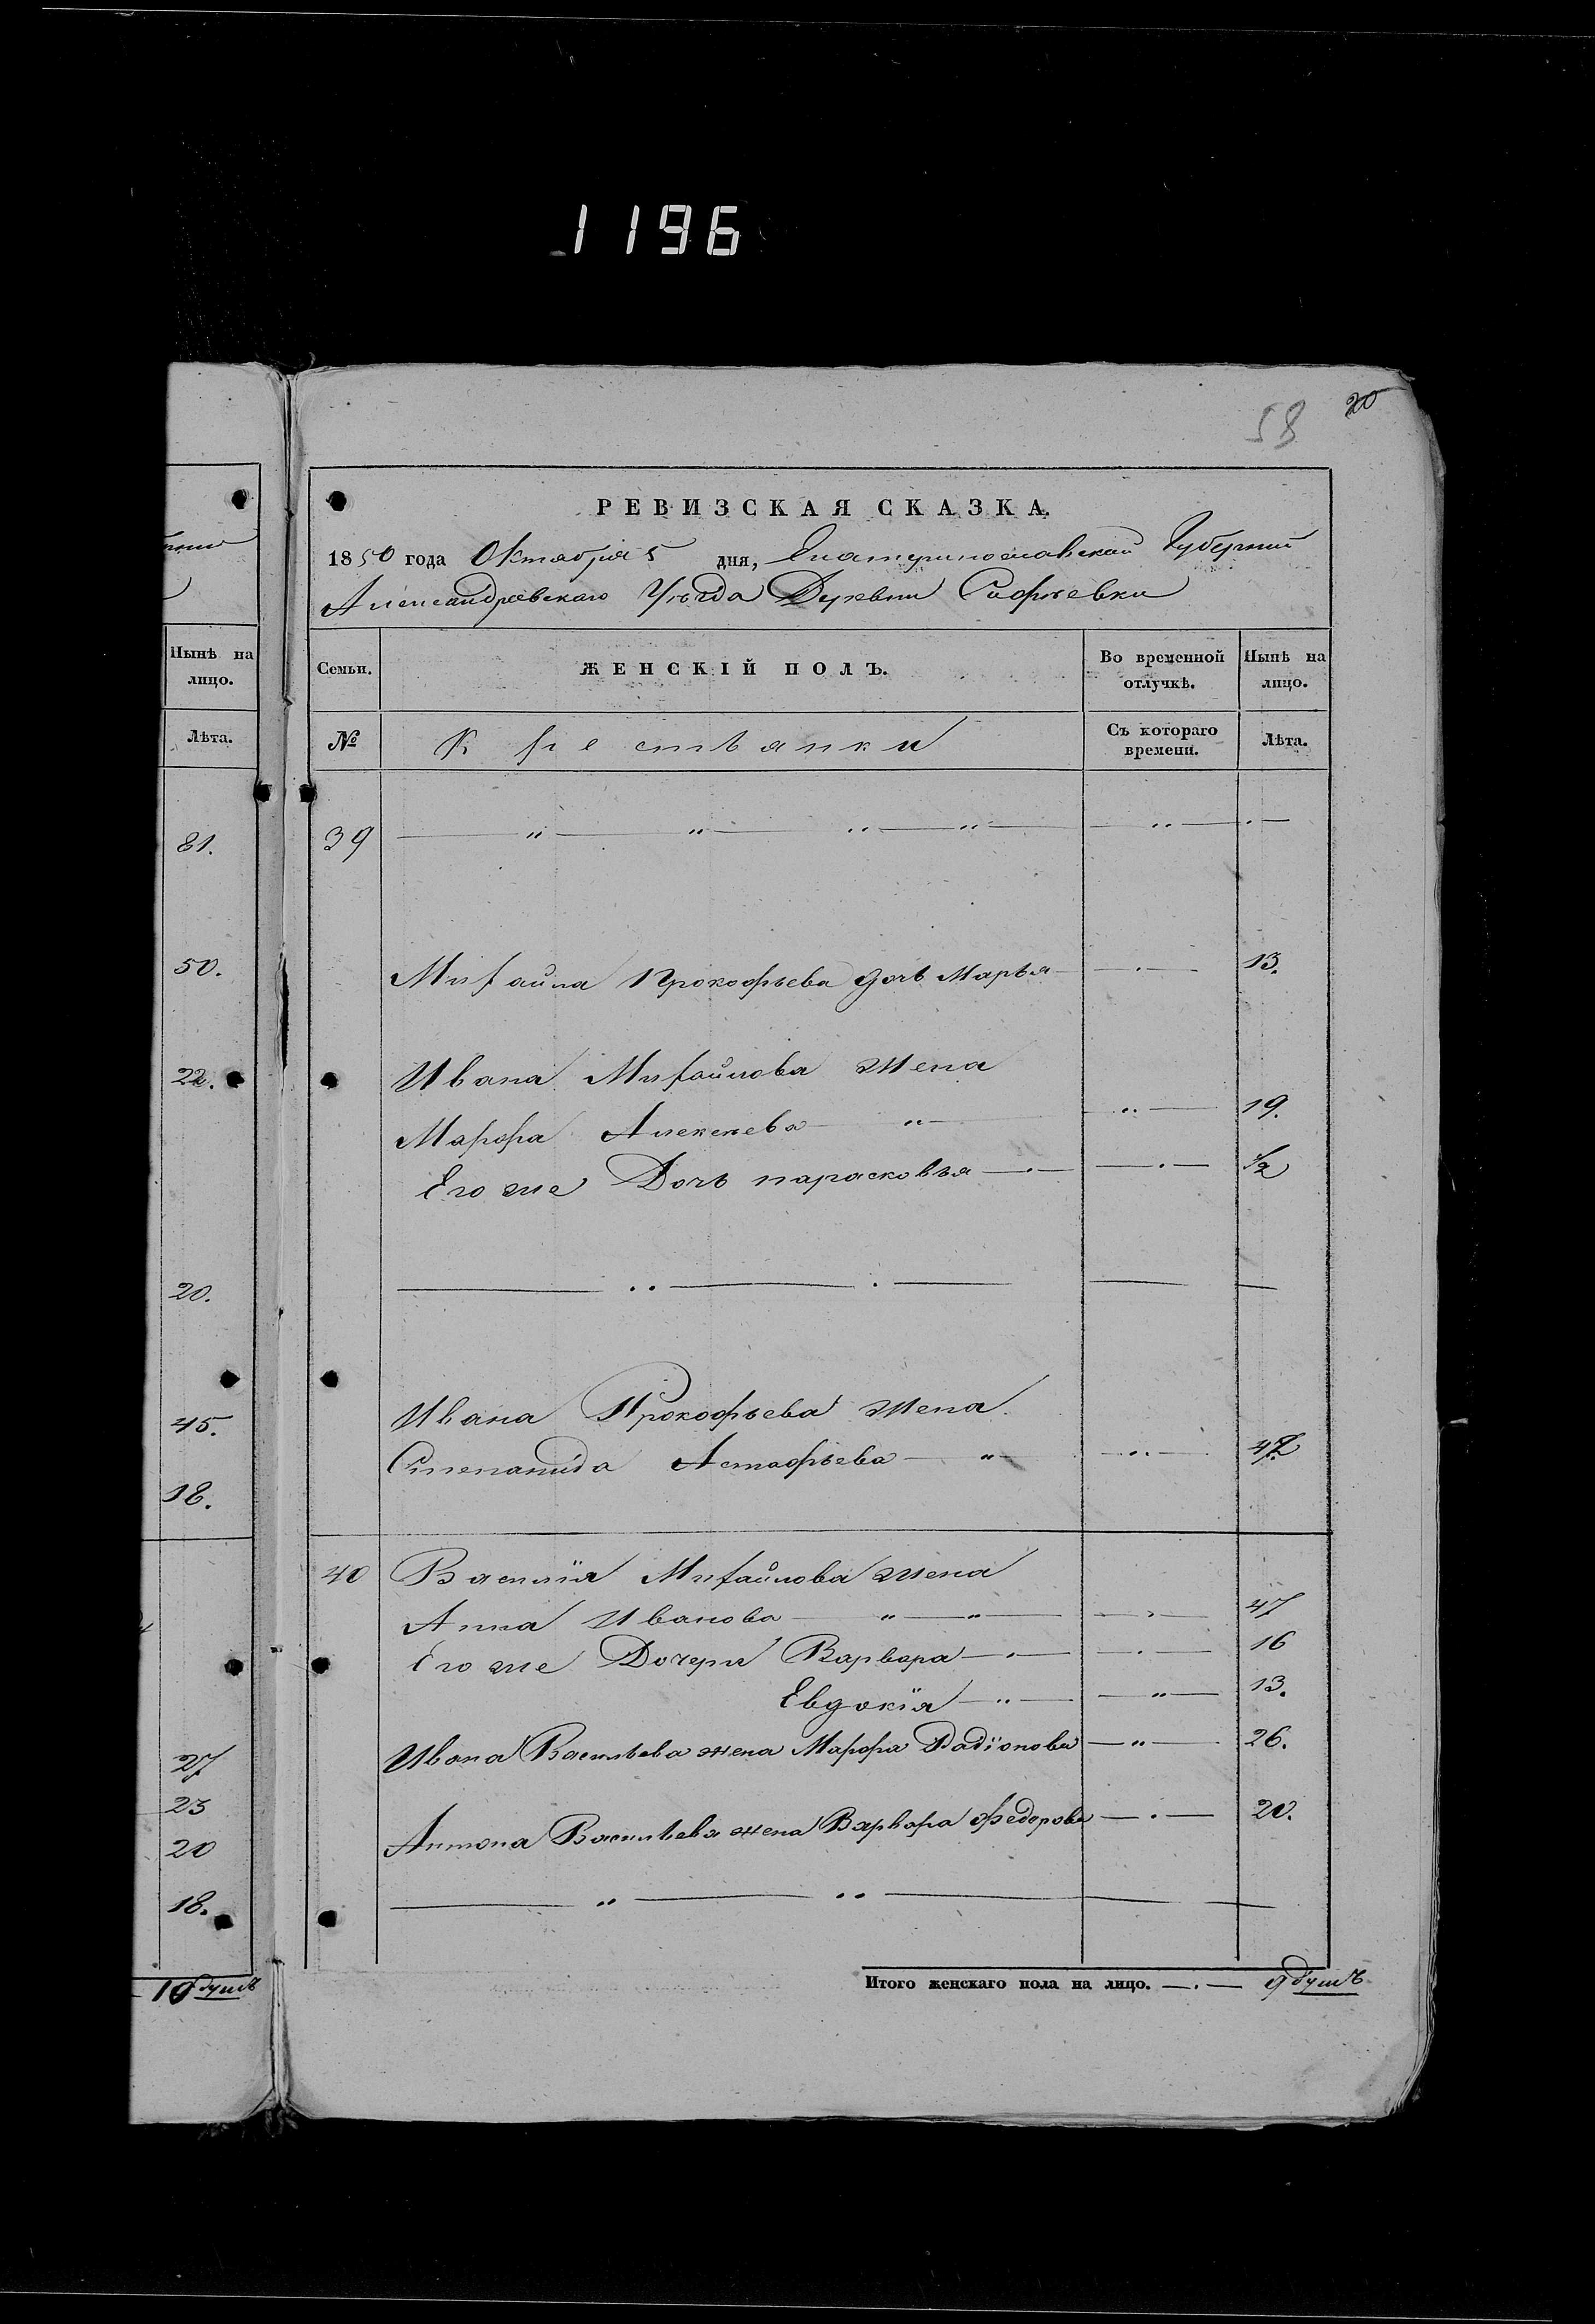 1196
58 20
РЕВИЗСКАЯ СКАЗКА.
1850 года Октября 5 дня, Екатеринославской Губернии
Александровскаго Уѣзда Деревни Софіевки
Нынѣ на лицо.
Лѣта.
81.
50.
22.
20.
45.
18.
27
23
20
18.
10 душъ
Семьи. ЖЕНСКІЙ ПОЛЪ. Во временной отлучкѣ. Нынѣ на лицо.
№ Крестьянки Съ котораго времени. Лѣта.
39
Михайла Прокофьева дочь Марья 13.
Ивана Михайлова жена
Марфа Алексеева 19.
Его же Дочь парасковья 1/2
Ивана Прокофьева жена
Степанида Астафьева 47
40 Василія Михайлова жена
Анна Иванова 47
Его же Дочери Варвара 16
Евдокія 13.
Ивана Васильева жена Марфа Радіонова 26.
Антона Васильева жена Варвара Федорова 20.
Итого женскаго пола на лицо. 9 душъ